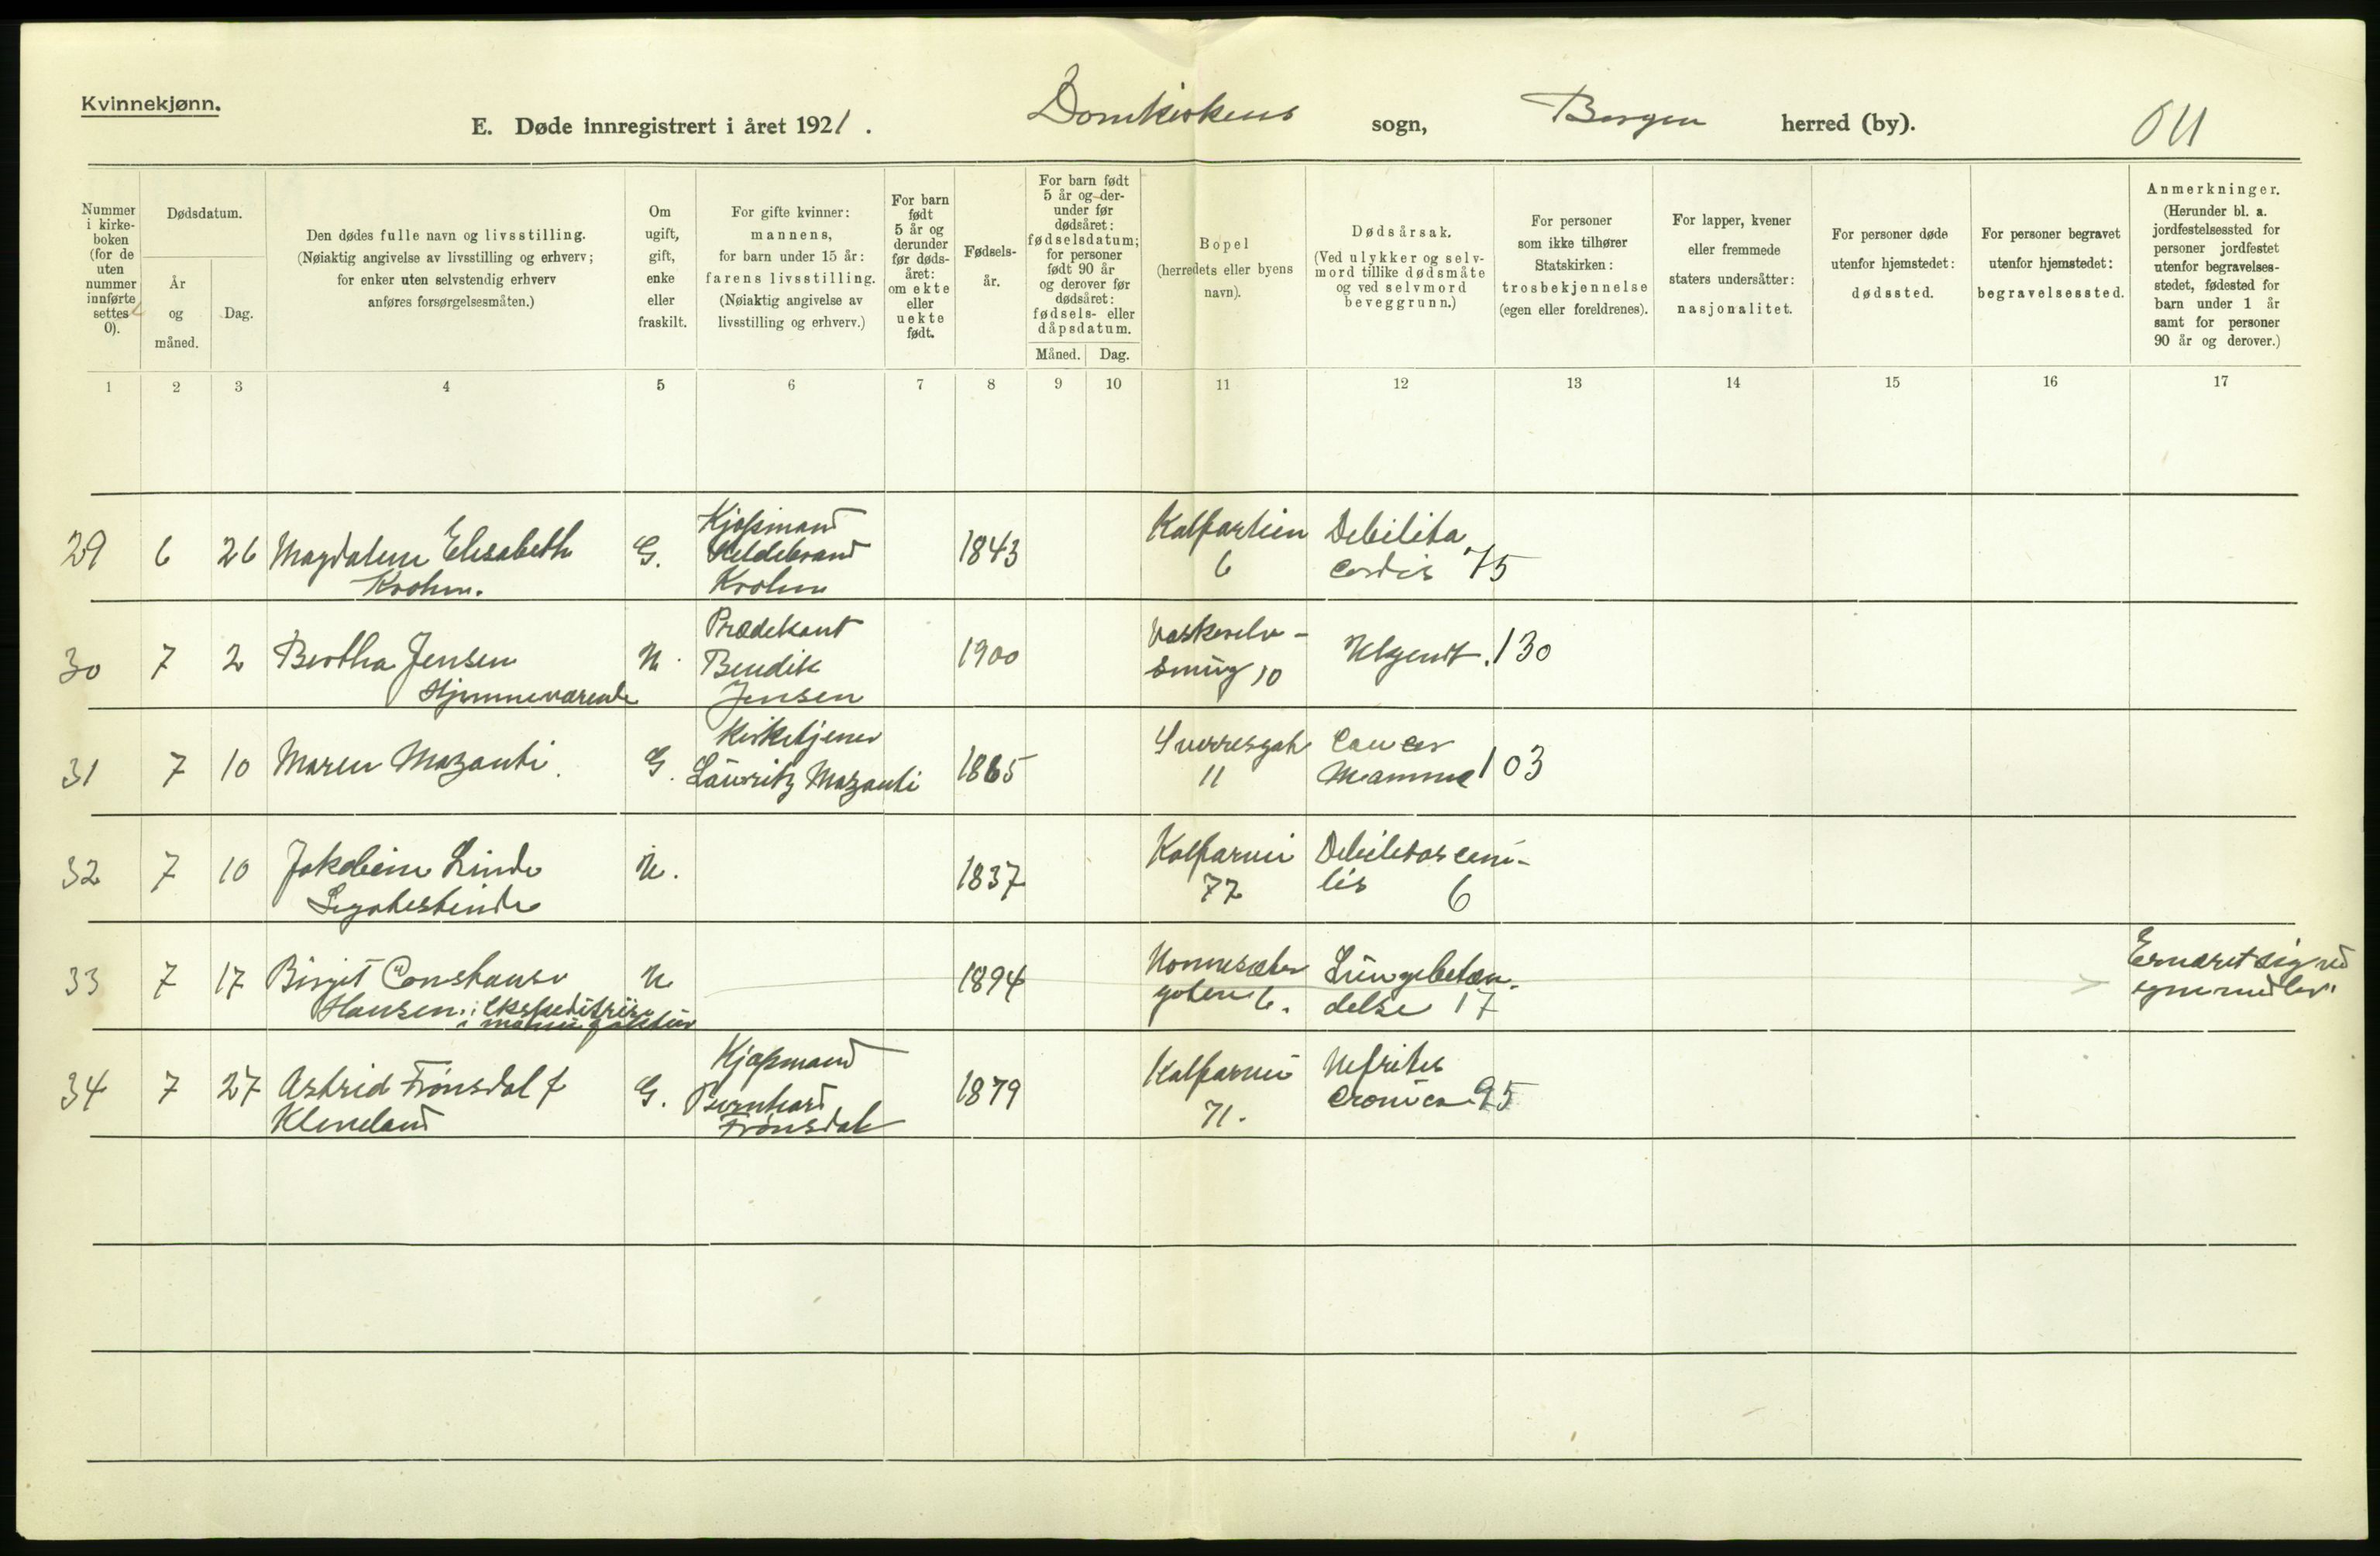 Kvinnekjønn.
E. Døde innregistrert i året 1921. Domkirkens sogn, Bergen herred (by).
Nummer i kirke-boken (for de uten nummer innførte settes 0).
Dødsdatum.
År og måned.
Dag.
Den dødes fulle navn og livsstilling.
(Nøiaktig angivelse av livsstilling og erhverv;
for enker uten selvstendig erhverv
anføres forsørgelsesmåten.)
Om ugift, gift, enke eller fraskilt.
For gifte kvinner:
mannens,
for barn under 15 år:
farens livsstilling.
(Nøiaktig angivelse av
livsstilling og erhverv.)
For barn født 5 år og derunder før døds-året: om ekte eller uekte født.
Fødsels-år.
For barn født 5 år og der-under før dødsåret: fødselsdatum; for personer født 90 år og derover før dødsåret: fødsels- eller dåpsdatum.
Måned. Dag.
Bopel
(herredets eller byens navn).
Dødsårsak.
(Ved ulykker og selv-
mord tillike dødsmåte
og ved selvmord
beveggrunn.)
For personer
som ikke tilhører
Statskirken:
trosbekjennelse
(egen eller foreldrenes).
For lapper, kvener
eller fremmede
staters undersåtter:
nasjonalitet.
For personer døde
utenfor hjemstedet:
dødssted.
For personer begravet
utenfor hjemstedet:
begravelsessted.
Anmerkninger.
(Herunder bl. a.
jordfestelsessted for
personer jordfestet
utenfor begravelses-
stedet, fødested for
barn under 1 år
samt for personer
90 år og derover.)
1 2 3 4 5 6 7 8 9 10 11 12 13 14 15 16 17
29 6 26 Magdalene Elisabeth
Krohn.
G.
Kjøpmand
Hildebrand
Krohn
1843
Kalfarlien
6
Debilita
cordis 75
30 7 2 Bertha Jensen
Hjemmeværende
U.
Prædikant
Bendik
Jensen
1900
Vaskerelv-
smug 10
Ukjendt. 130
31 7 10 Maren Mazanti.
G.
Kirketjener
Lauritz Mazanti
1865
Sverresgate
11
Cancer
Mammae 103
32 7 10 Jakobine Linde
Legateskinde
U.
1837
Kalfarvei
72
Debilitas seni-
lis 6
33 7 17 Birgit Constanse
Hansen. Ekspeditrise
i manufaktur
U
1894
Nonnesæter
gaten 6.
Lungebetæn-
delse 17
Ernæret sig ved
egne midler.
34 7 27 Astrid Frønsdal f
Kleveland
G.
Kjøpmand
Bernhard
Frønsdal
1879
Kalfarvei
71.
Nefrites
Cronica 95